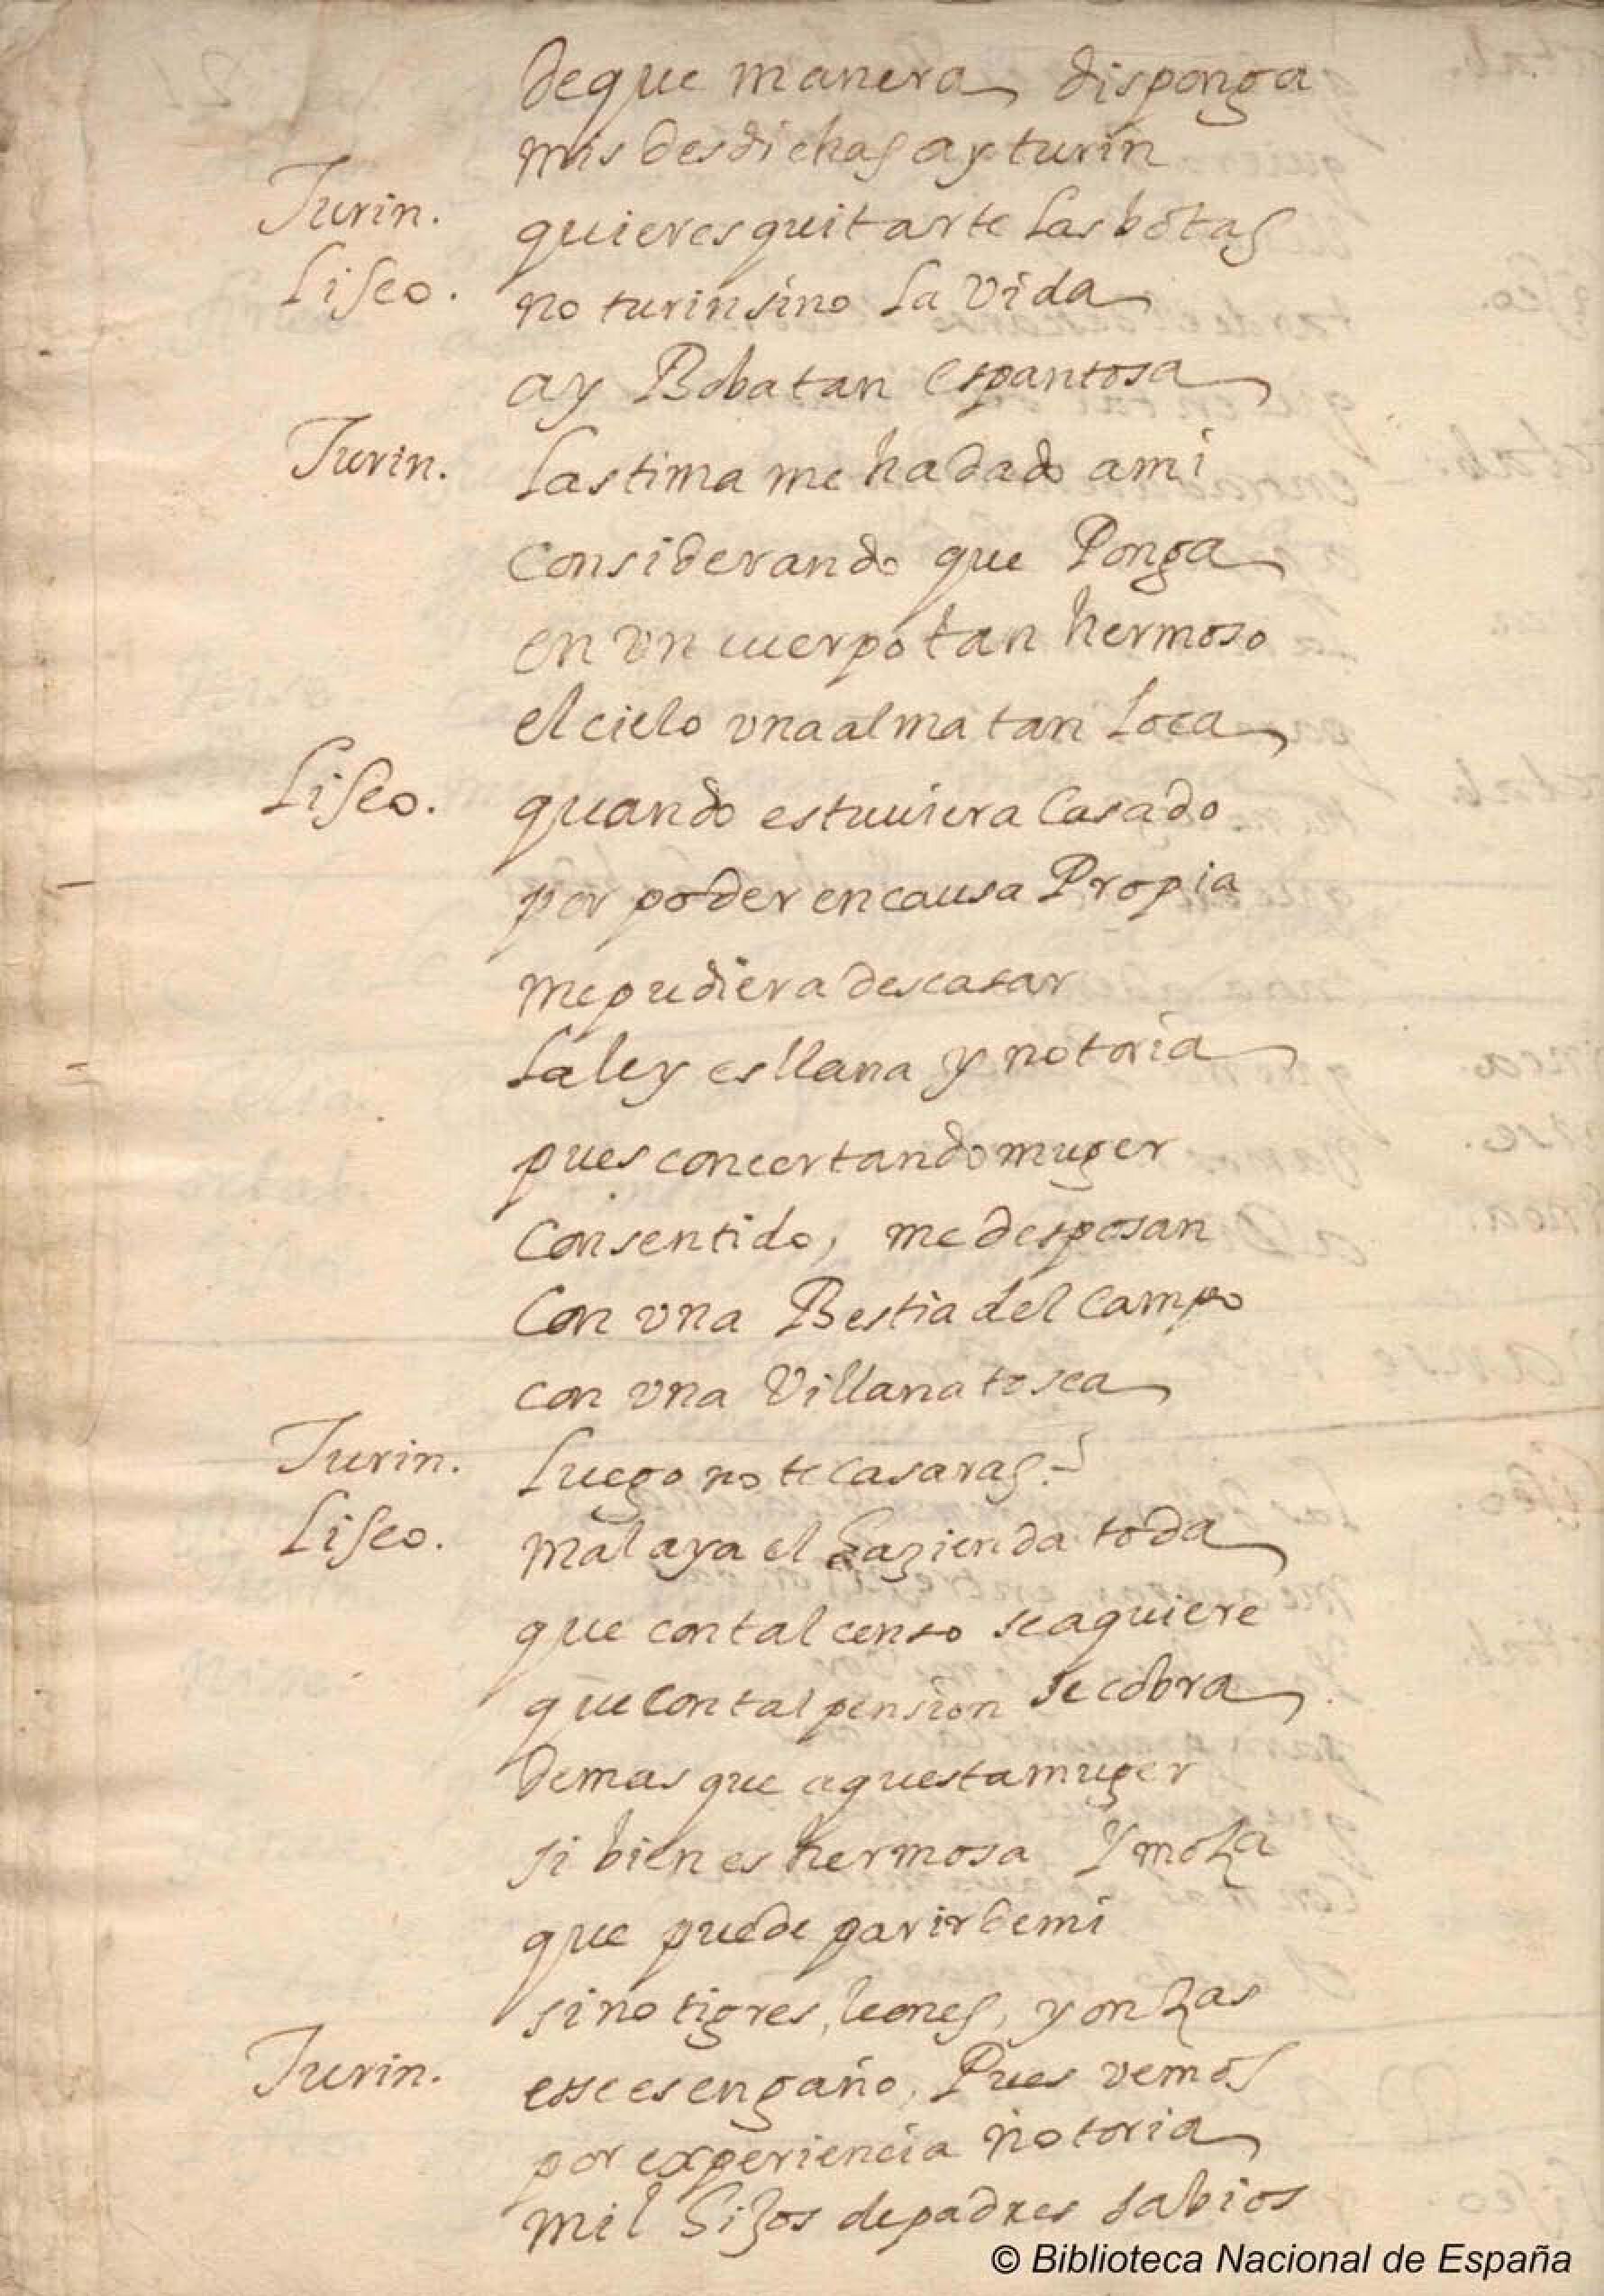 de que manera disponga
mis desdichas ay turin
Turin. quieres quitarte las botas
Liseo. no turin sino la vida
ay Boba tan espantosa
Turin. lastima me ha dado a mi
considerando que Ponga
en vn cuerpo tan hermoso
el cielo vna alma tan loca
Liseo. quando estuuiera casado
por poder en causa Propia
me pudiera descasar
la ley es llana y notoria
pues concertando muger
con sentido, me desposan
con vna Bestia del campo
con vna Villana tosca
Turin. luego no te casaras?
Liseo. mal aya el hazienda toda
que con tal censo se aquiere
que con tal pension se cobra
demas que aquesta muger
si bien es hermosa Y moza
que puede parir de mi
sino tigres, leones, y onzas
Turin. esse es engaño, Pues vemos
por experiencia notoria
mil hijos de padres sabios
© Biblioteca Nacional de España